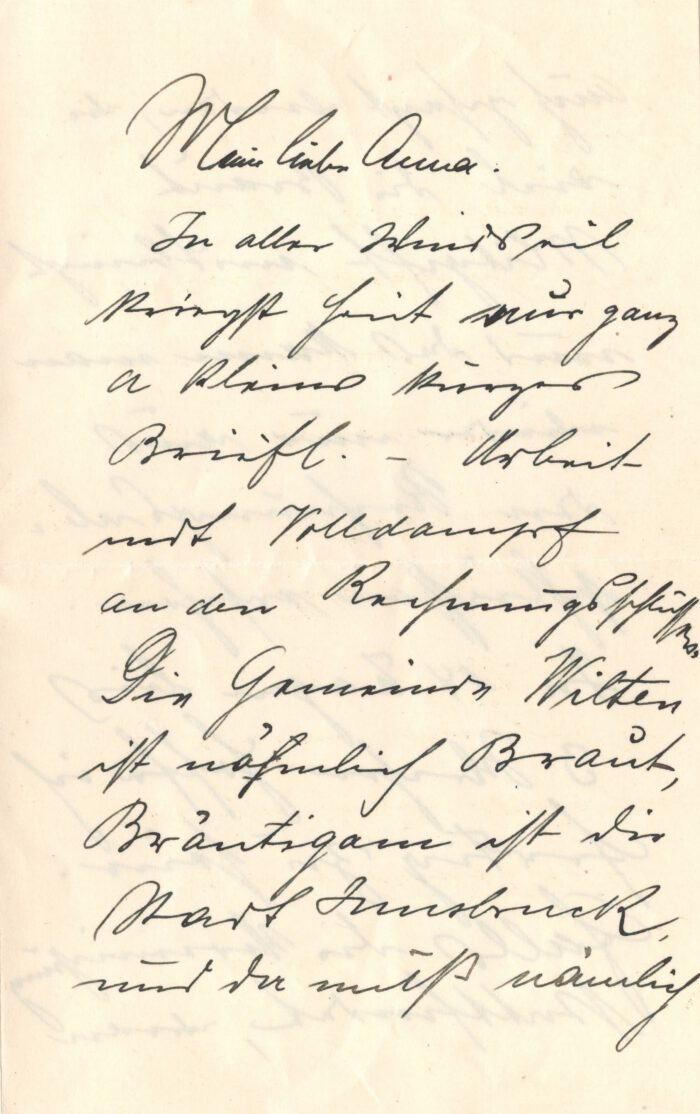 Meine liebe Anna.
In aller Windseil
kriegst heut nur ganz
a kleins kurzes
Briefl. – Arbeit
mit Volldampf
an den Rechnungsschlüssen
Die Gemeinde Wilten
ist nähmlich Braut,
Bräutigam ist die
Stadt Innsbruck,
und da muß nämlich